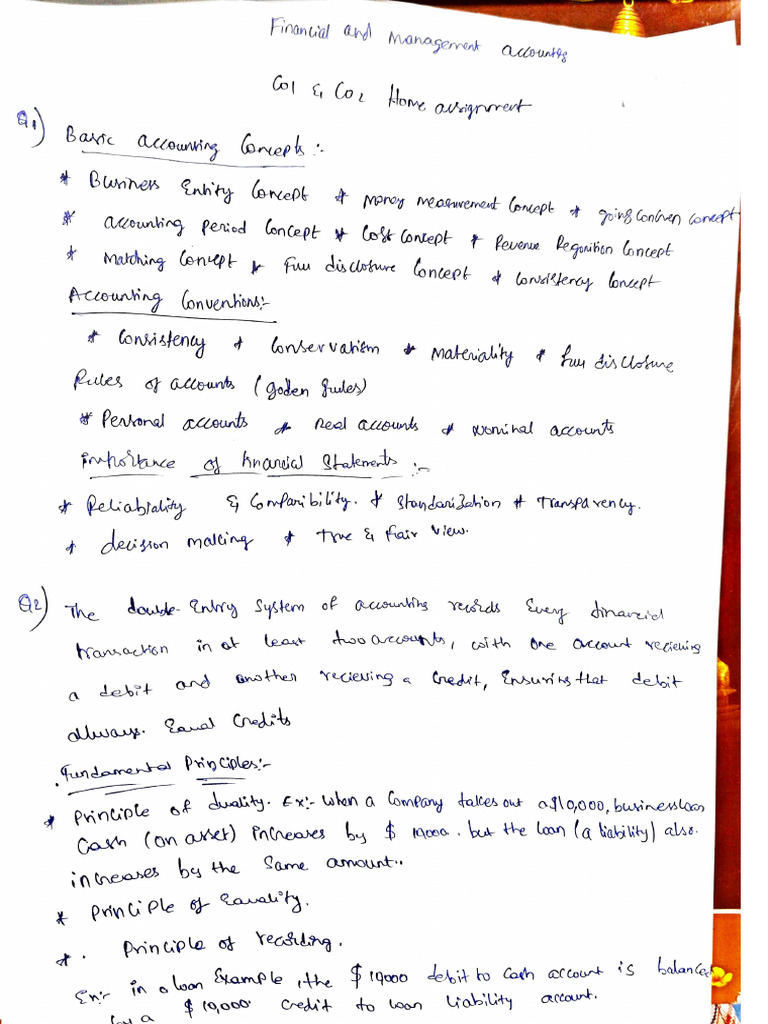 Financial and Management accounts
CO1 & CO2 Home assignment
Q1) Basic accounting Concepts :-
* Business Entity Concept * Money measurement Concept * going Concern concept
* accounting period Concept * Cost Concept * Revenue Regonition Concept
* Matching Concept * Full disclosure Concept * Consistency Concept
Accounting Conventions:-
* Consistency * Conservatism * Materiality * full disclosure
Rules of accounts (golden rules)
* Personal accounts * Real accounts * Nominal accounts
importance of financial Statements :-
* Reliability & Comparibility. * Standarization * Transparency.
* decision making * True & Fair view.
Q2) The double-Entry System of accounting records Every financial
transaction in at least two accounts, with one account recieving
a debit and another recieving a Credit, Ensuring that debit
always. Equal Credits
Fundamental Principles:-
* Principle of duality. Ex:- When a Company takes out a $10,000, business loan
Cash (an asset) increases by $ 10,000. but the loan (a liability) also.
increases by the same amount..
* Principle of Equality.
* . Principle of recording.
Ex:- in a loan Example, the $ 10,000 debit to cash account is balanced
by a $ 10,000. Credit to loan liability account.